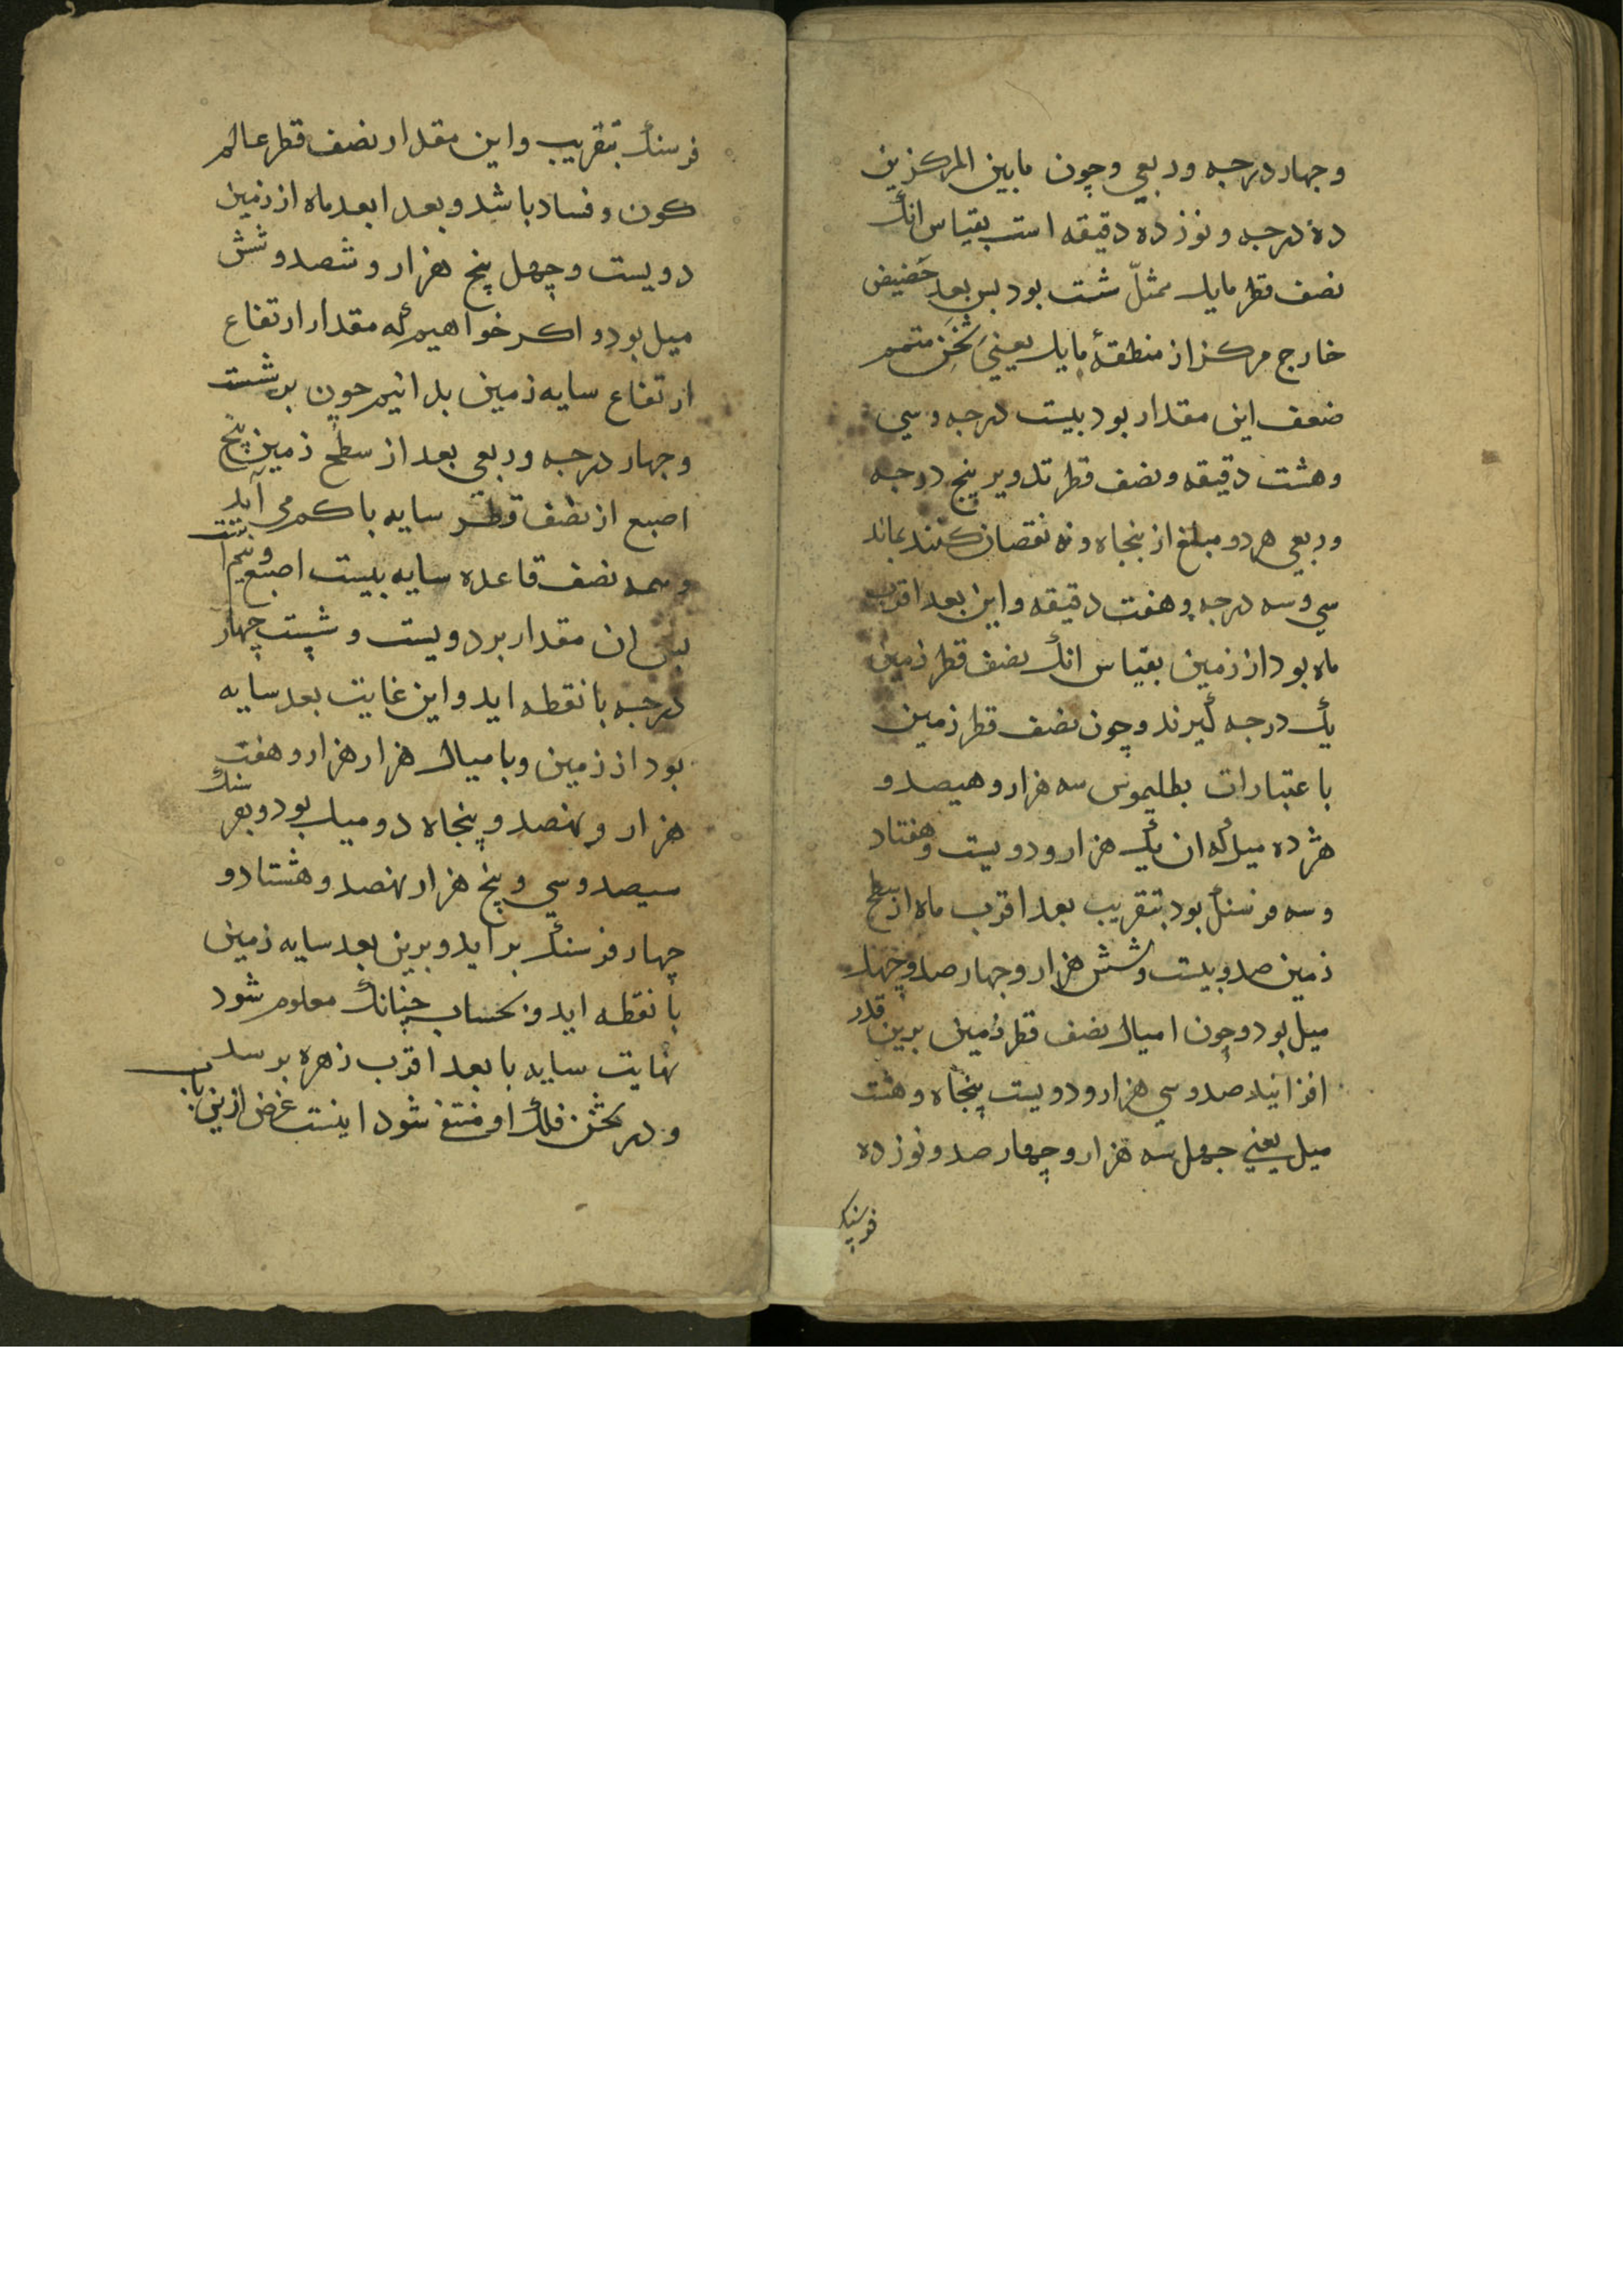 وجهار درجه وربعي وچون مابين المركزين
ده درجه ونوزده دقيقه است بقياس انك
نصف قطر مايل ممثل شت بود بس بعد حضيض
خارج مركز از منطقهٔ مايل يعني ثخن متمم
ضعف اين مقدار بود بيست درجه وسي
وهشت دقيقه ونصف قطر تدوير پنج درجه
وربعي هر دو مبلغ از پنجاه ونه نقصان كنند بماند
سي وسه درجه وهفت دقيقه واين بعد اقرب
ماه بود از زمين بقياس انك نصف قطر زمين
يك درجه گيرند وچون نصف قطر زمين
باعتبارات بطليموس سه هزار وهيصد و
هژده ميل كه ان يك هزار ودويست وهفتاد
وسه فرسنك بود بتقريب بعد اقرب ماه از سطح
زمين صد وبيست وشش هزار وجهار صد وچهل
ميل بود وچون اميال نصف قطر زمين برين قدر
افزايند صد وسي هزار ودويست پنجاه وهشت
ميل يعني جهل سه هزار وچهار صد ونوزده
فرسنك
فرسنك بتقريب واين مقدار نصف قطر عالم
كون وفساد باشد وبعد ابعد ماه از زمين
دويست وچهل پنج هزار وشصد وشش
ميل بود واكر خواهيم كه مقدار ارتفاع
ارتفاع سايه زمين بدانيم چون بر شست
وجهار درجه وربعي بعد از سطح زمين پنج
اصبع از نصف قطر سايه با كم مي آيد
وسمه نصف قاعده سايه بيست اصبع ونيم است
بس ان مقدار بر دويست وشست چهار
درجه با نقطه ايد واين غايت بعد سايه
بود از زمين وباميال هزار هزار وهفت
هزار ونهصد وپنجاه دو ميل بود وبفرسنك
سيصد وسي وپنج هزار نهصد وهشتاد و
چهار فرسنك برايد وبرين بعد سايه زمين
با نقطه ايد وبحساب چنانك معلوم شود
نهايت سايه با بعد اقرب زهره برسد
ودر ثخن فلك او منتفي شود اينست غرض ازين باب